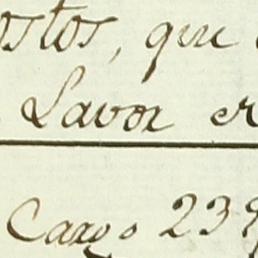 ostos, que
Lavor er
Cargo 239